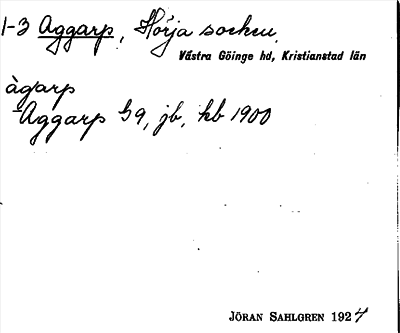 1-3 Aggarp, Hörja socken,
Västra Göinge hd, Kristianstad län
àgarp
-Aggarp G9, jb, kb 1900
JÖRAN SAHLGREN 1924